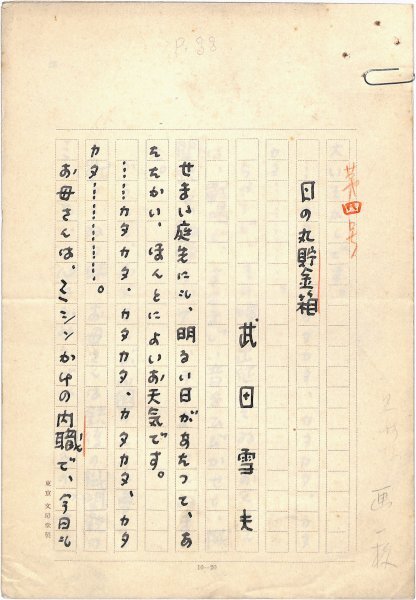 第四号
日の丸貯金箱
武田雪夫
せまい庭先にも、明るい日があたって、あ
たたかい、ほんとによいお天気です。
……カタカタ、カタカタ、カタカタ、カタ
カタ…………。
お母さんは、ミシンかけの内職で、今日も
東京 文房堂製
10—20